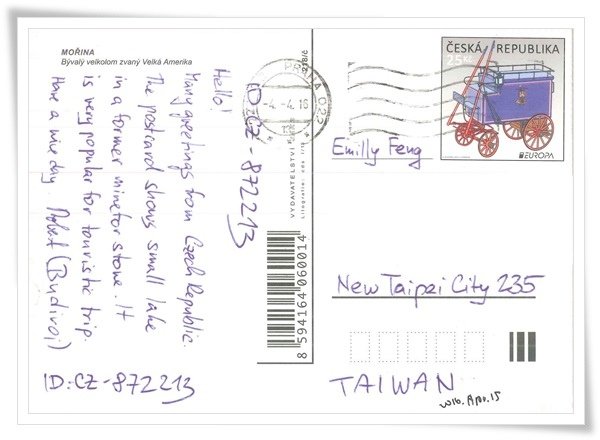 MOŘINA
Bývalý velkolom zvaný Velká Amerika
Hello!
Many greetings from Czech Republic.
The postcard shows small lake
in a former mine for stone. It
is very popular for touristic trip.
Have a nice day. (Budivoj)
ID: CZ-872213
ID: CZ-872213
PRAHA 025
-4.-4.16
VYDAVATELSTVÍ
8 594164 060014
ČESKÁ REPUBLIKA
EUROPA
Emilly Feng
New Taipei City 235
TAIWAN
Apr.15